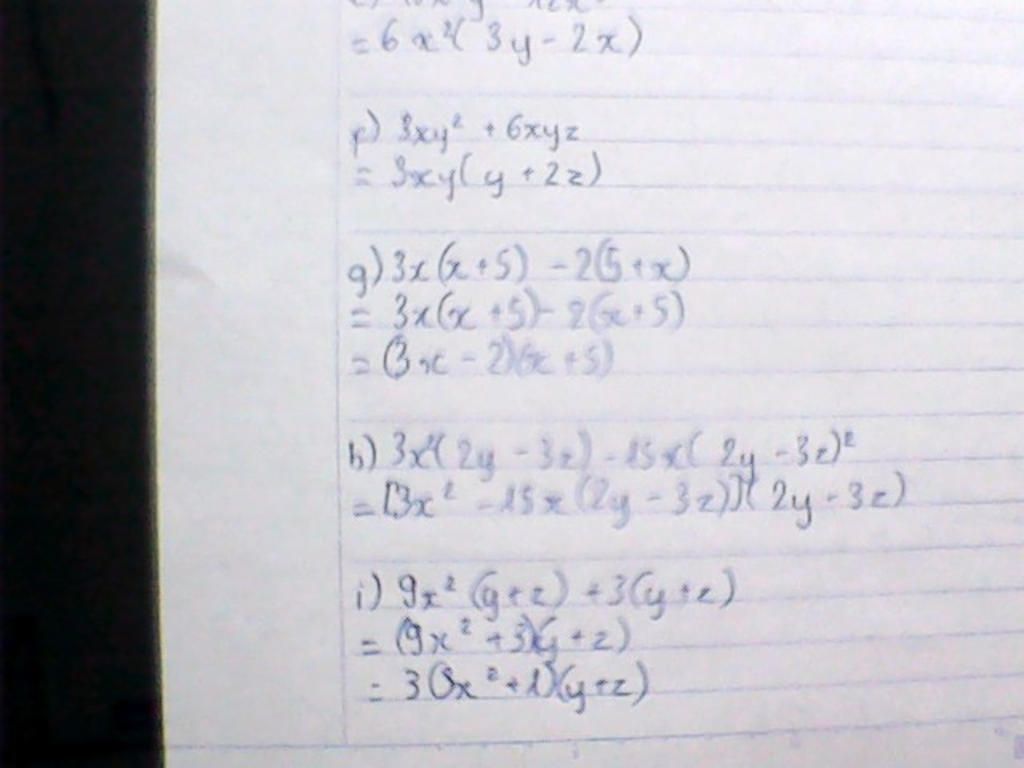 = 6x²(3y - 2x)
f) 3xy² + 6xyz
= 3xy(y + 2z)
g) 3x(x+5) - 2(5+x)
= 3x(x+5) - 2(x+5)
= (3x - 2)(x+5)
h) 3x²(2y - 3z) - 15x(2y - 3z)²
= [3x² - 15x(2y - 3z)](2y - 3z)
i) 9x²(y+z) + 3(y+z)
= (9x² + 3)(y+z)
= 3(3x² + 1)(y+z)